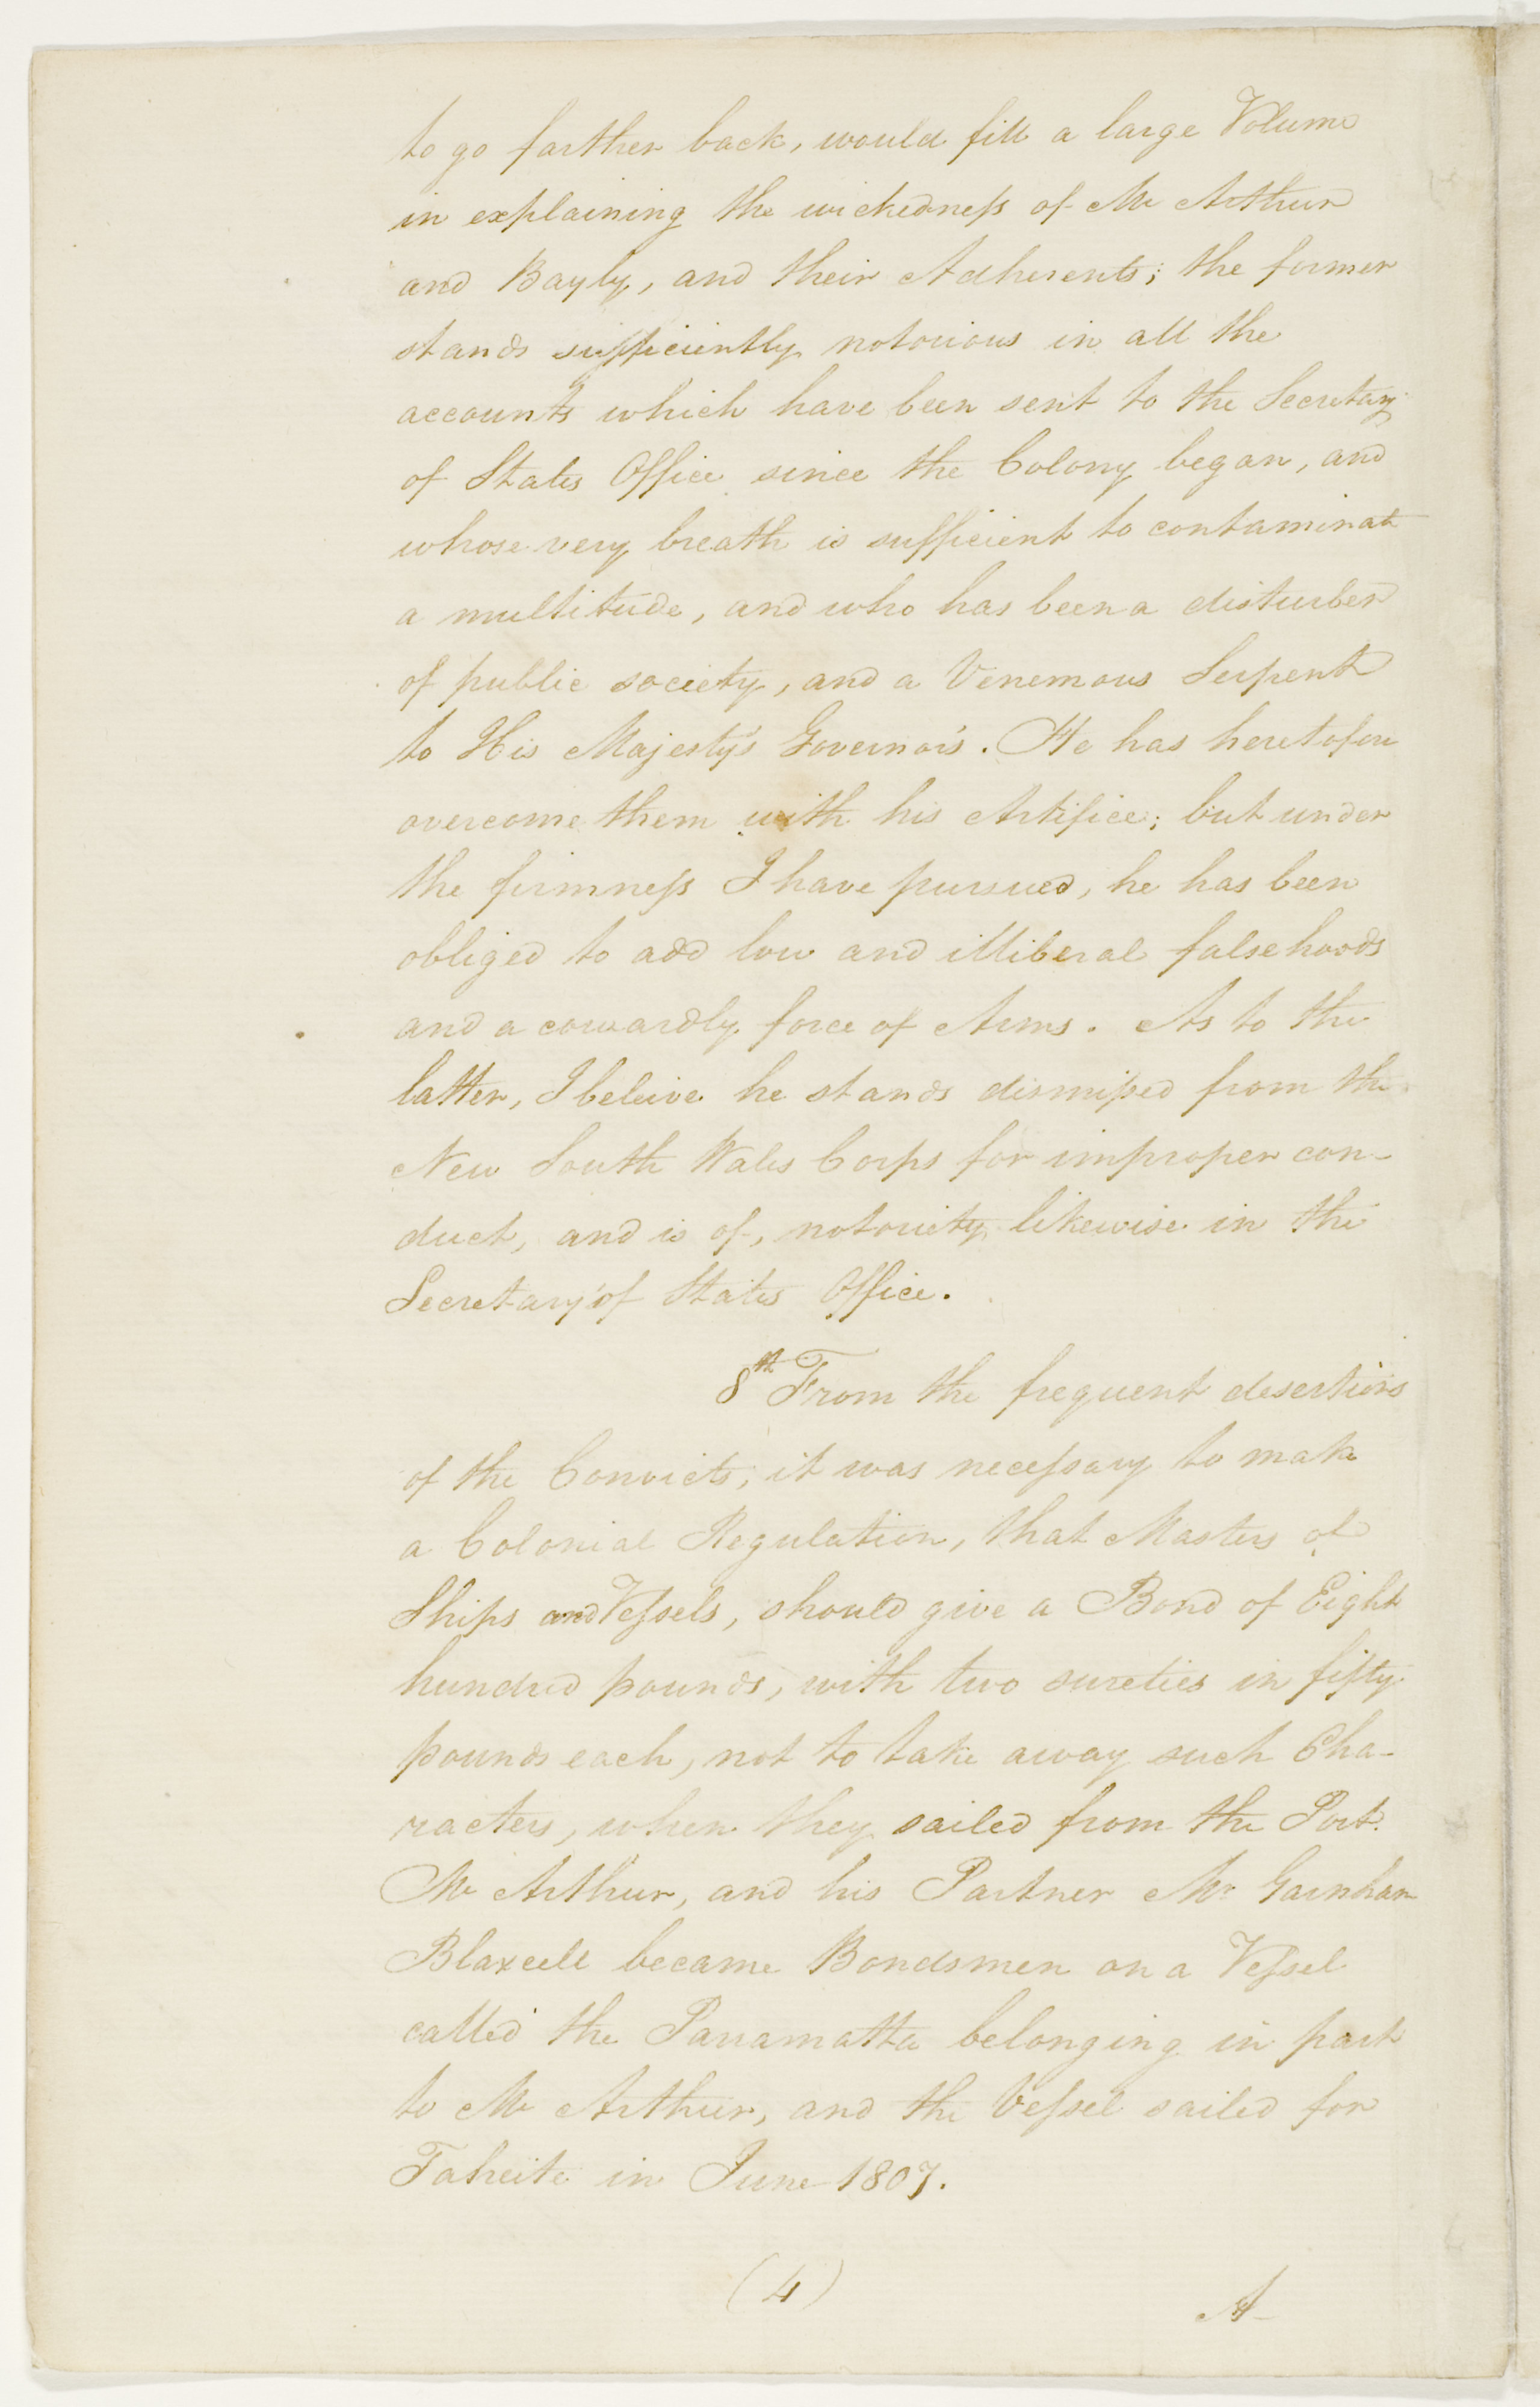 to go farther back, would fill a large Volume
in explaining the wickedness of Mc Arthur
and Bayly, and their Adherents; the former
stands sufficiently notorious in all the
accounts which have been sent to the Secretary
of States Office since the Colony began, and
whose very breath is sufficient to contaminate
a multitude, and who has been a disturber
of public society, and a Venemous Serpent
to His Majesty's Governors. He has heretofore
overcome them with his Artifice; but under
the firmness I have pursued, he has been
obliged to add low and illiberal falsehoods
and a cowardly force of Arms. As to the
latter, I beleive he stands dismissed from the
New South Wales Corps for improper con-
duct, and is of, notoriety likewise in the
Secretary of States Office.
8th From the frequent desertions
of the Convicts, it was necessary to make
a Colonial Regulation, that Masters of
Ships and Vessels, should give a Bond of Eight
hundred pounds, with two sureties in fifty
pounds each, not to take away such Cha-
racters, when they sailed from the Port.
Mc Arthur, and his Partner Mr Garnham
Blaxcell became Bondsmen on a Vessel
called the Parramatta belonging in part
to Mc Arthur, and the Vessel sailed for
Taheite in June 1807.
(4)
A